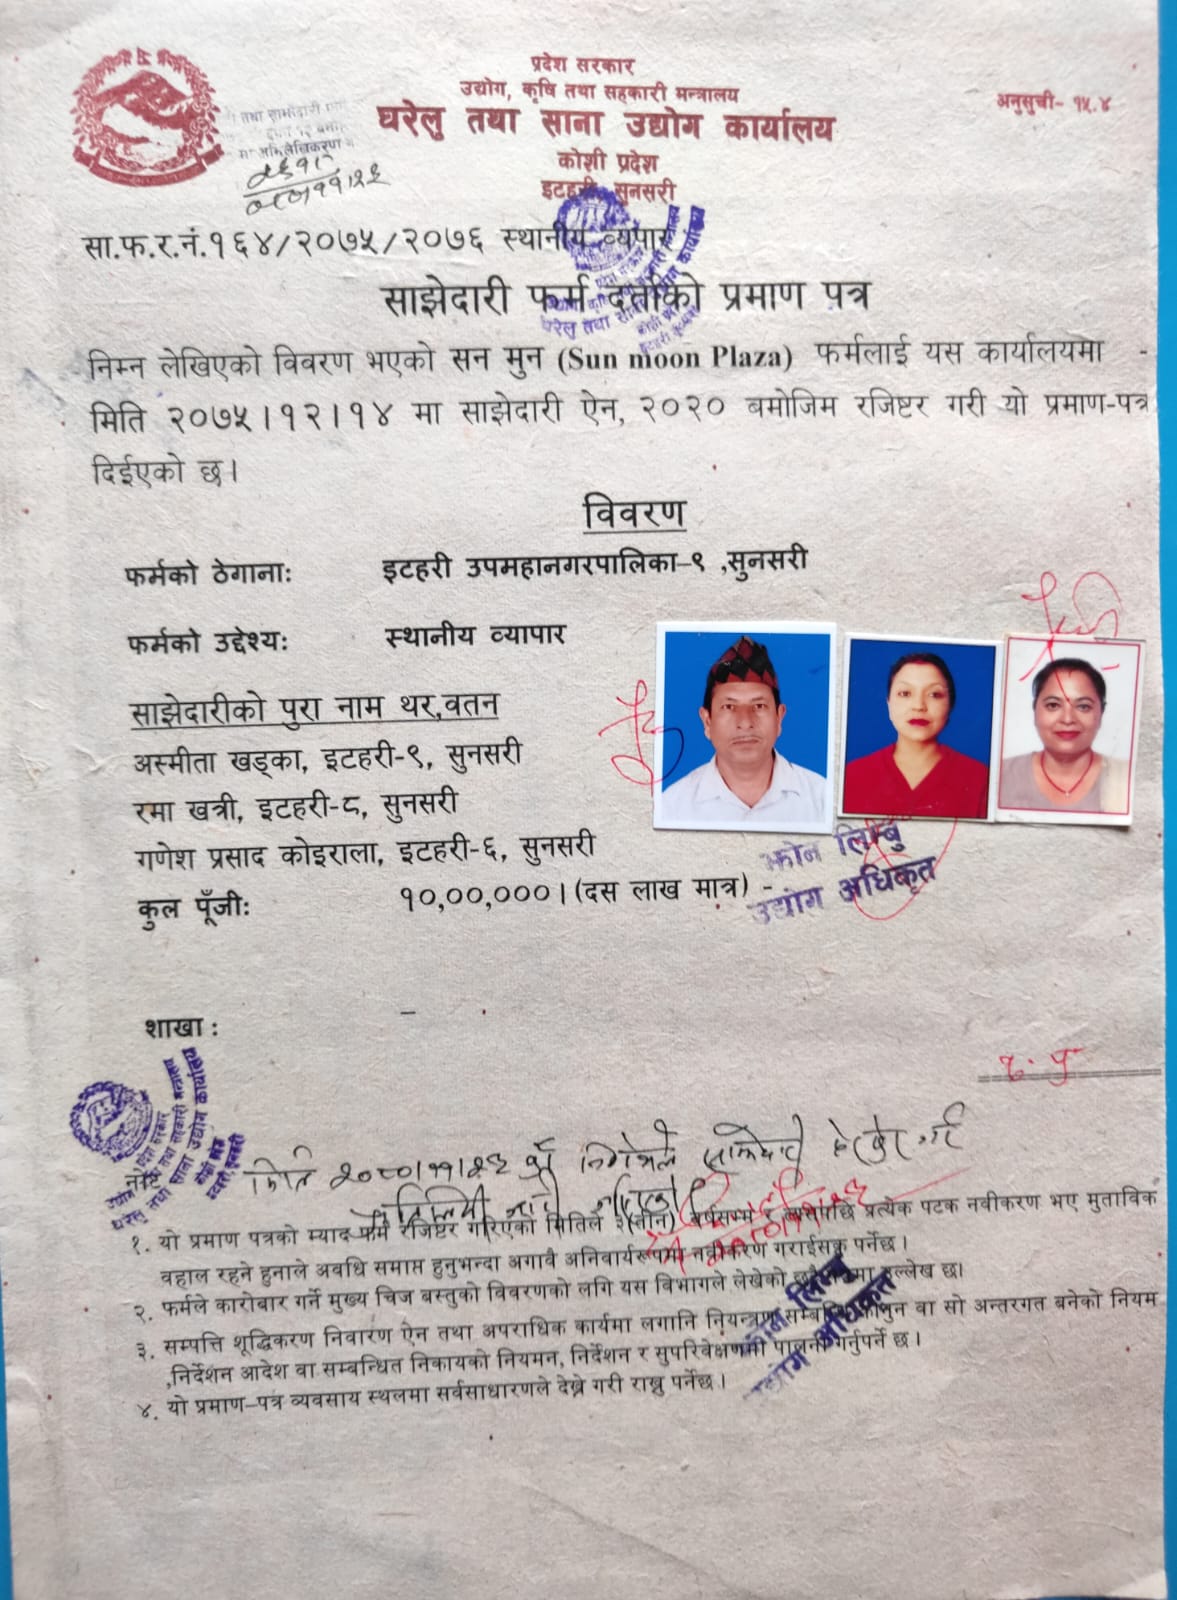 प्रदेश सरकार
उद्योग, कृषि तथा सहकारी मन्त्रालय
घरेलु तथा साना उद्योग कार्यालय
कोशी प्रदेश
इटहरी, सुनसरी
अनुसुची- १५.४
सा.फ.र.नं.१६४/२०७५/२०७६ स्थानीय व्यापार
साझेदारी फर्म दर्ताको प्रमाण पत्र
निम्न लेखिएको विवरण भएको सन मुन (Sun moon Plaza) फर्मलाई यस कार्यालयमा -
मिति २०७५।१२।१४ मा साझेदारी ऐन, २०२० बमोजिम रजिष्टर गरी यो प्रमाण-पत्र
दिईएको छ।
विवरण
फर्मको ठेगानाः इटहरी उपमहानगरपालिका-९ ,सुनसरी
फर्मको उद्देश्यः स्थानीय व्यापार
साझेदारीको पुरा नाम थर,वतन
अस्मीता खड्का, इटहरी-९, सुनसरी
रमा खत्री, इटहरी-८, सुनसरी
गणेश प्रसाद कोइराला, इटहरी-६, सुनसरी
कुल पूँजीः १०,००,०००।(दस लाख मात्र) -
झोन लिम्बु
उद्योग अधिकृत
शाखा : –
उद्योग, कृषि तथा सहकारी मन्त्रालय
घरेलु तथा साना उद्योग कार्यालय
कोशी प्रदेश
इटहरी, सुनसरी
मिति २०८०।११।२६
१. यो प्रमाण पत्रको म्याद फर्म रजिष्टर गरिएको मितिले ३(तीन) वर्षसम्म र त्यसपछि प्रत्येक पटक नवीकरण भए मुताविक
वहाल रहने हुनाले अवधि समाप्त हुनुभन्दा अगावै अनिवार्यरूपमा नवीकरण गराईसक्नु पर्नेछ।
२. फर्मले कारोबार गर्ने मुख्य चिज बस्तुको विवरणको लगि यस विभागले लेखेको उल्लेख छ।
३. सम्पत्ति शूद्धिकरण निवारण ऐन तथा अपराधिक कार्यमा लगानि नियन्त्रण सम्बन्धि कानुन वा सो अन्तरगत बनेको नियम
,निर्देशन आदेश वा सम्बन्धित निकायको नियमन, निर्देशन र सुपरिवेक्षणमा पालना गर्नुपर्ने छ।
४. यो प्रमाण-पत्र व्यवसाय स्थलमा सर्वसाधारणले देख्ने गरी राख्नु पर्नेछ।
झोन लिम्बु
उद्योग अधिकृत